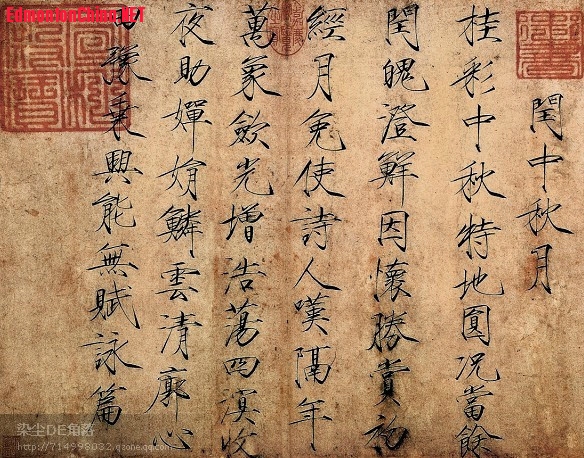 EdmontonChina.NET
閏中秋月
桂彩中秋特地圓況當餘
閏魄澄鮮因懷勝賞初
經月免使詩人嘆隔年
萬象歛光增浩蕩四溟收
夜助嬋娟鱗雲清廓心
豫乘興能無賦詠篇
染尘DE角落
http://714998032.qzone.qq.com